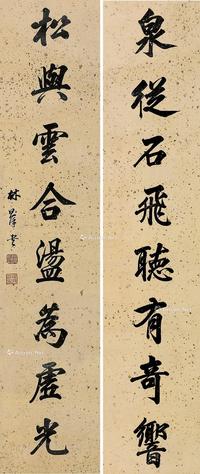 泉從石飛聽有奇響
松與雲合盪為虛光